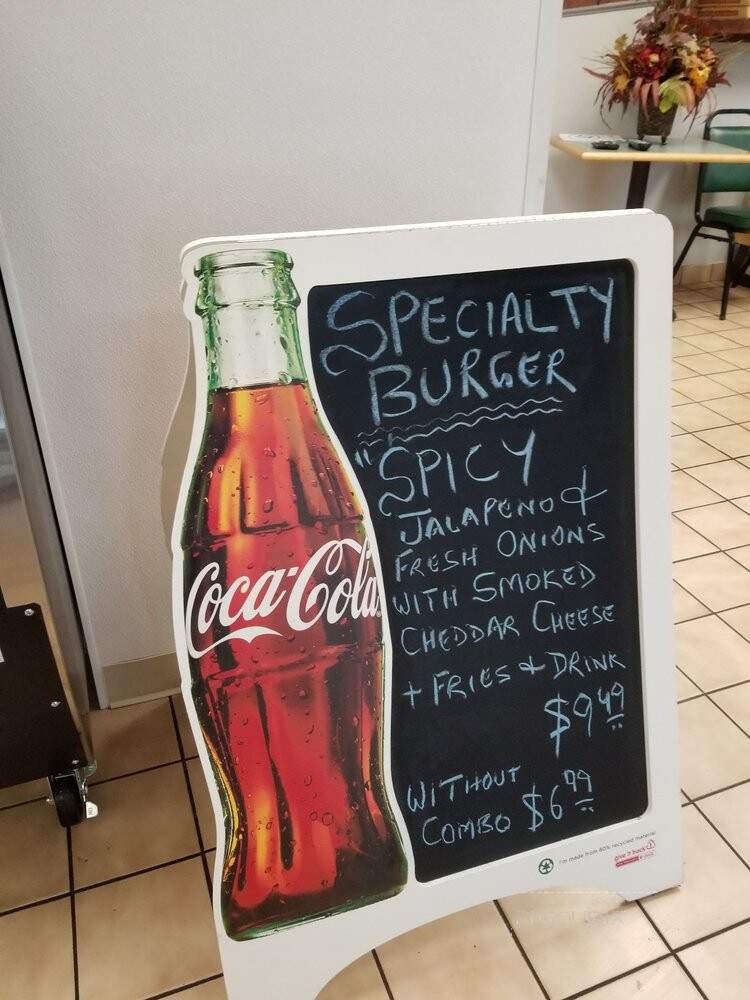 SPECIALTY
BURGER
"SPICY
JALAPENO &
FRESH ONIONS
WITH SMOKED
CHEDDAR CHEESE
+ FRIES & DRINK
$9.49
WITHOUT
COMBO $6.99
Coca-Cola
I'm made from 80% recycled material
give it back